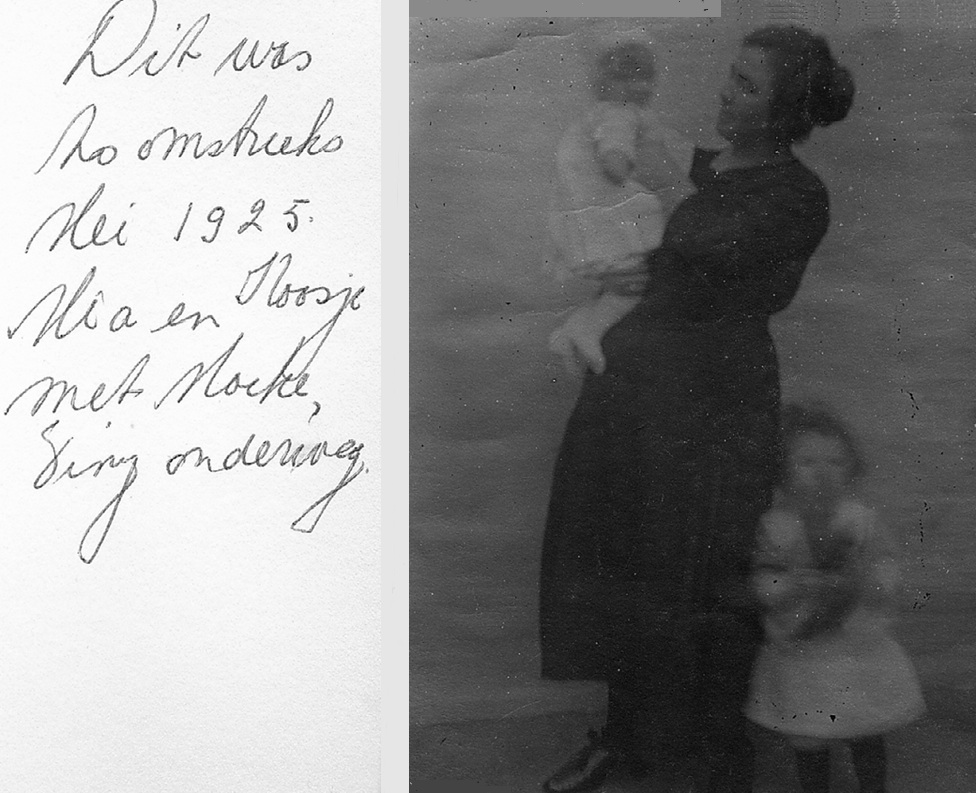 Dit was
zo omstreeks
Mei 1925.
Mia en Roosje
met Moeke,
onderweg.